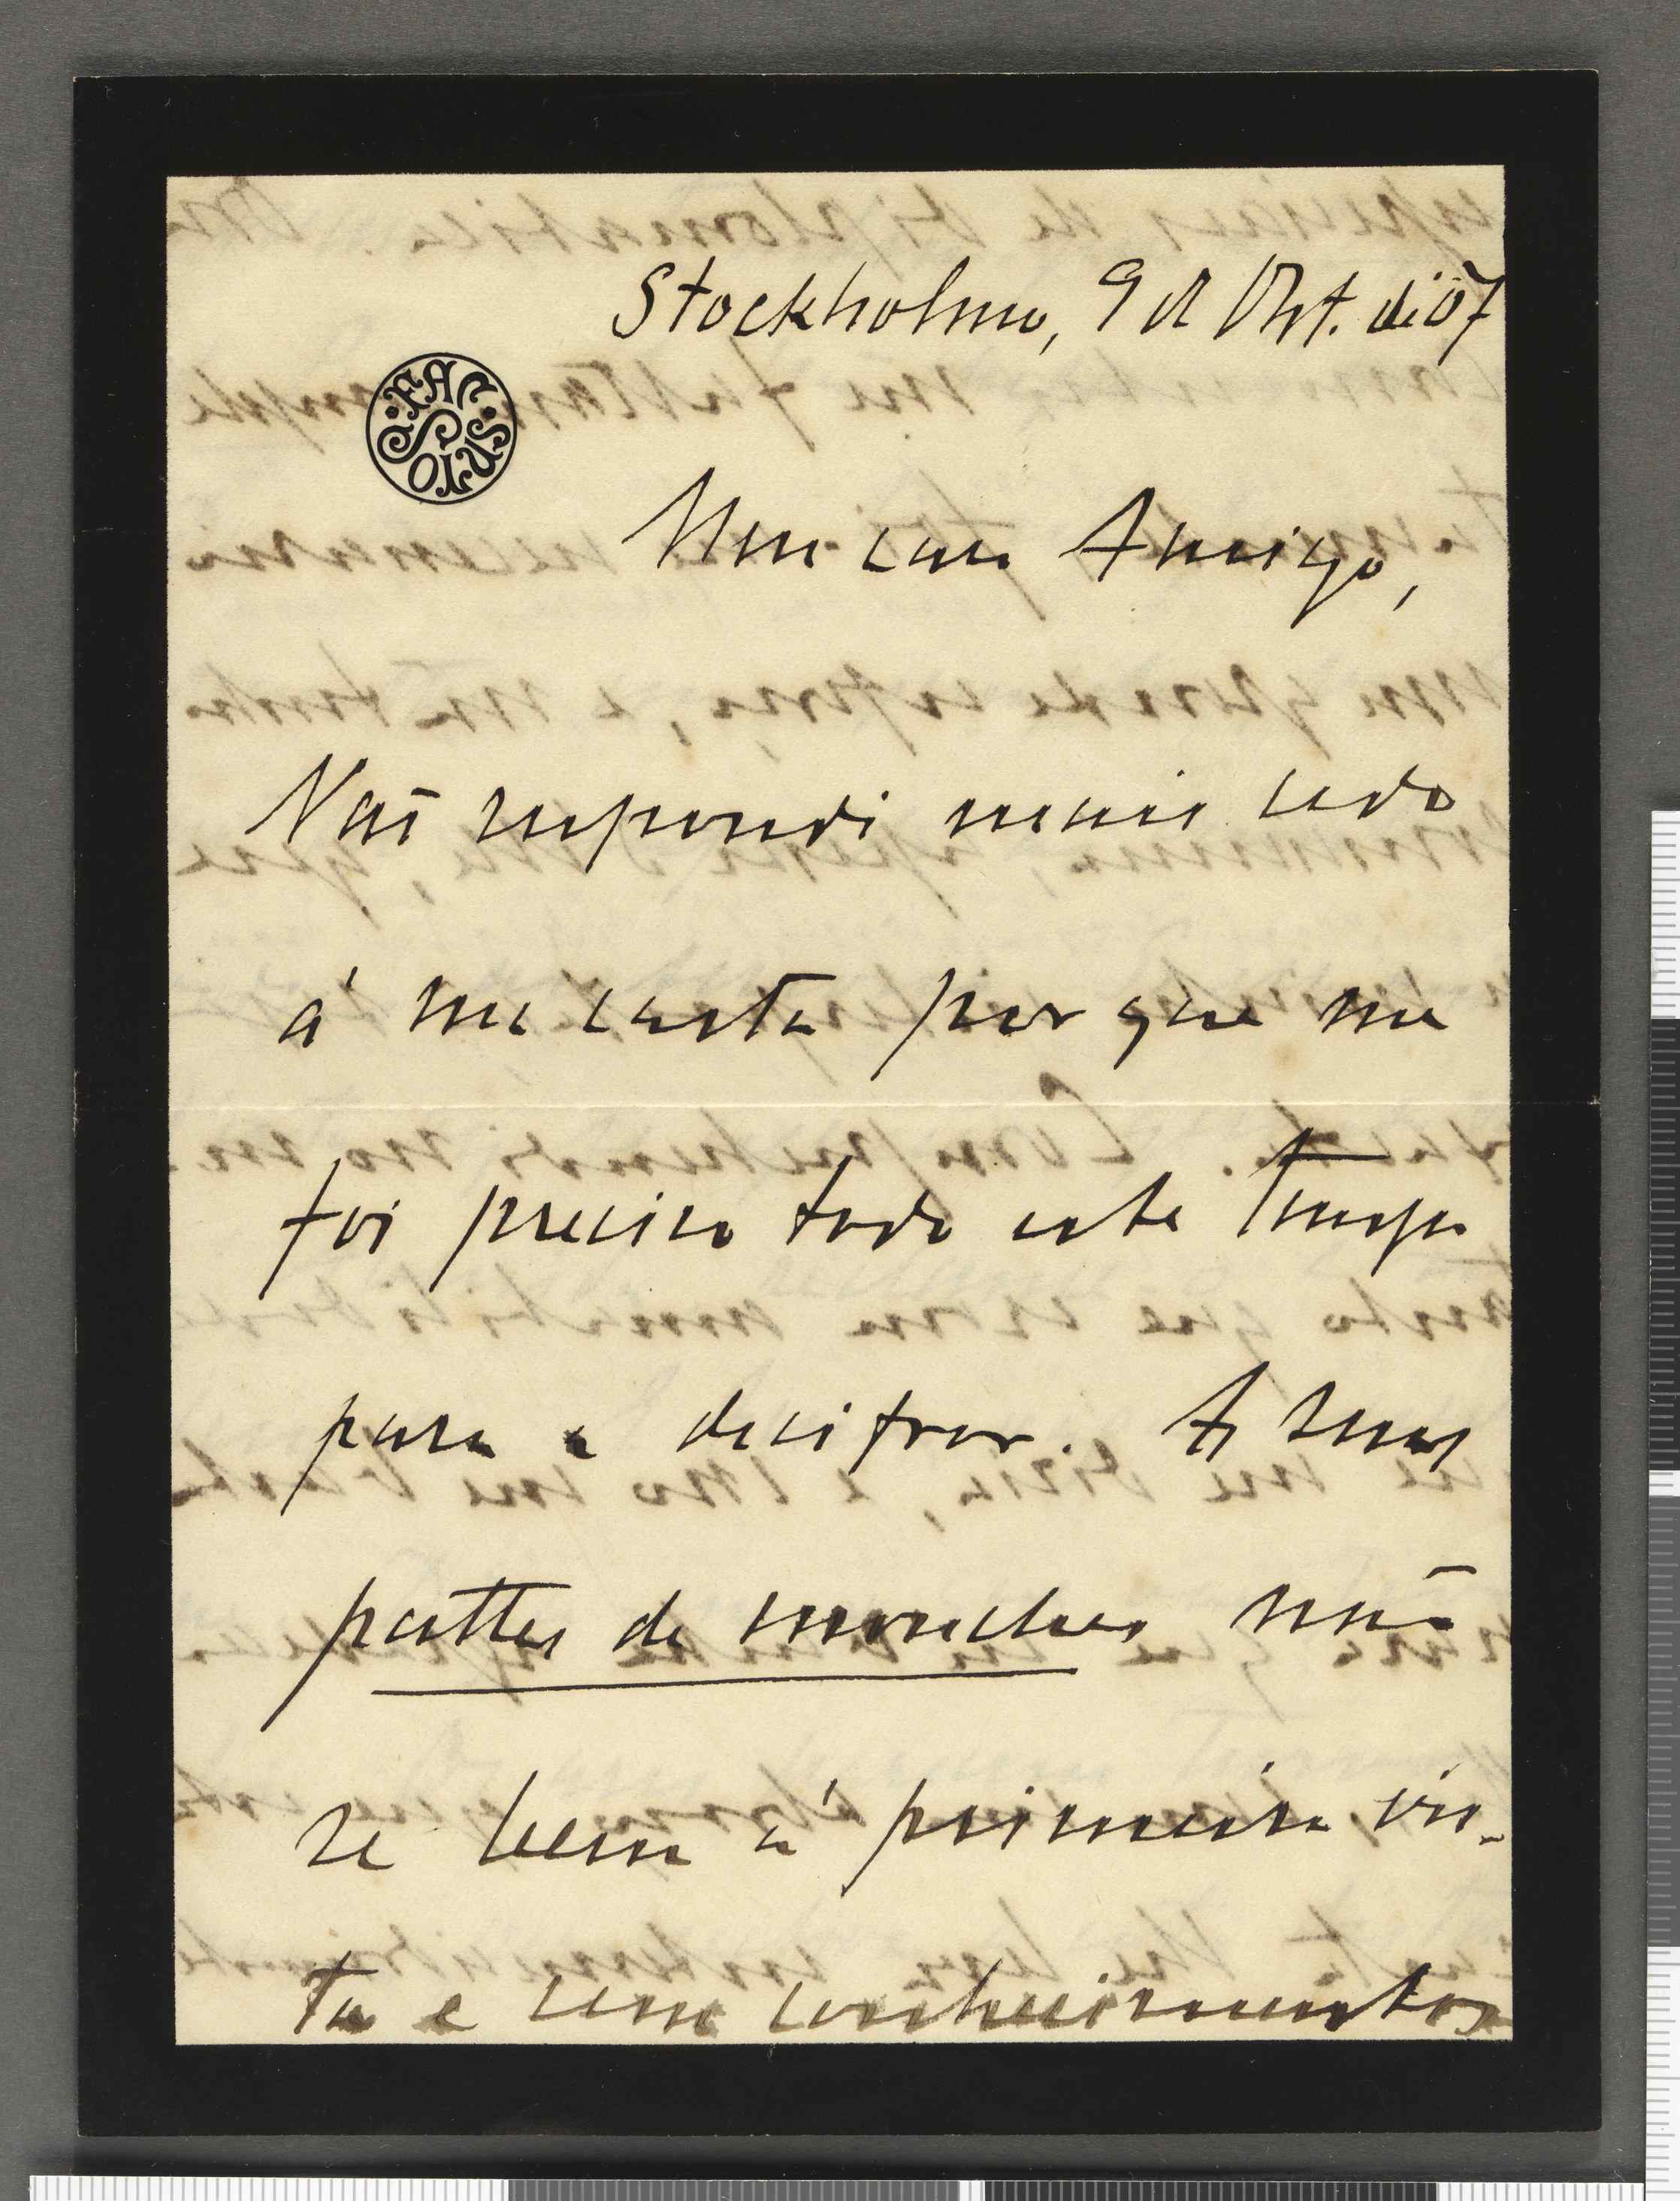 Stockholmo, 9 d Okt. de 07
Meu caro Amigo,
Não respondi mais cedo
á sua carta porque me
foi preciso todo este tempo
para a decifrar. As suas
pattes de mouches não
se leem á primeira vis-
ta e sem conhecimentos